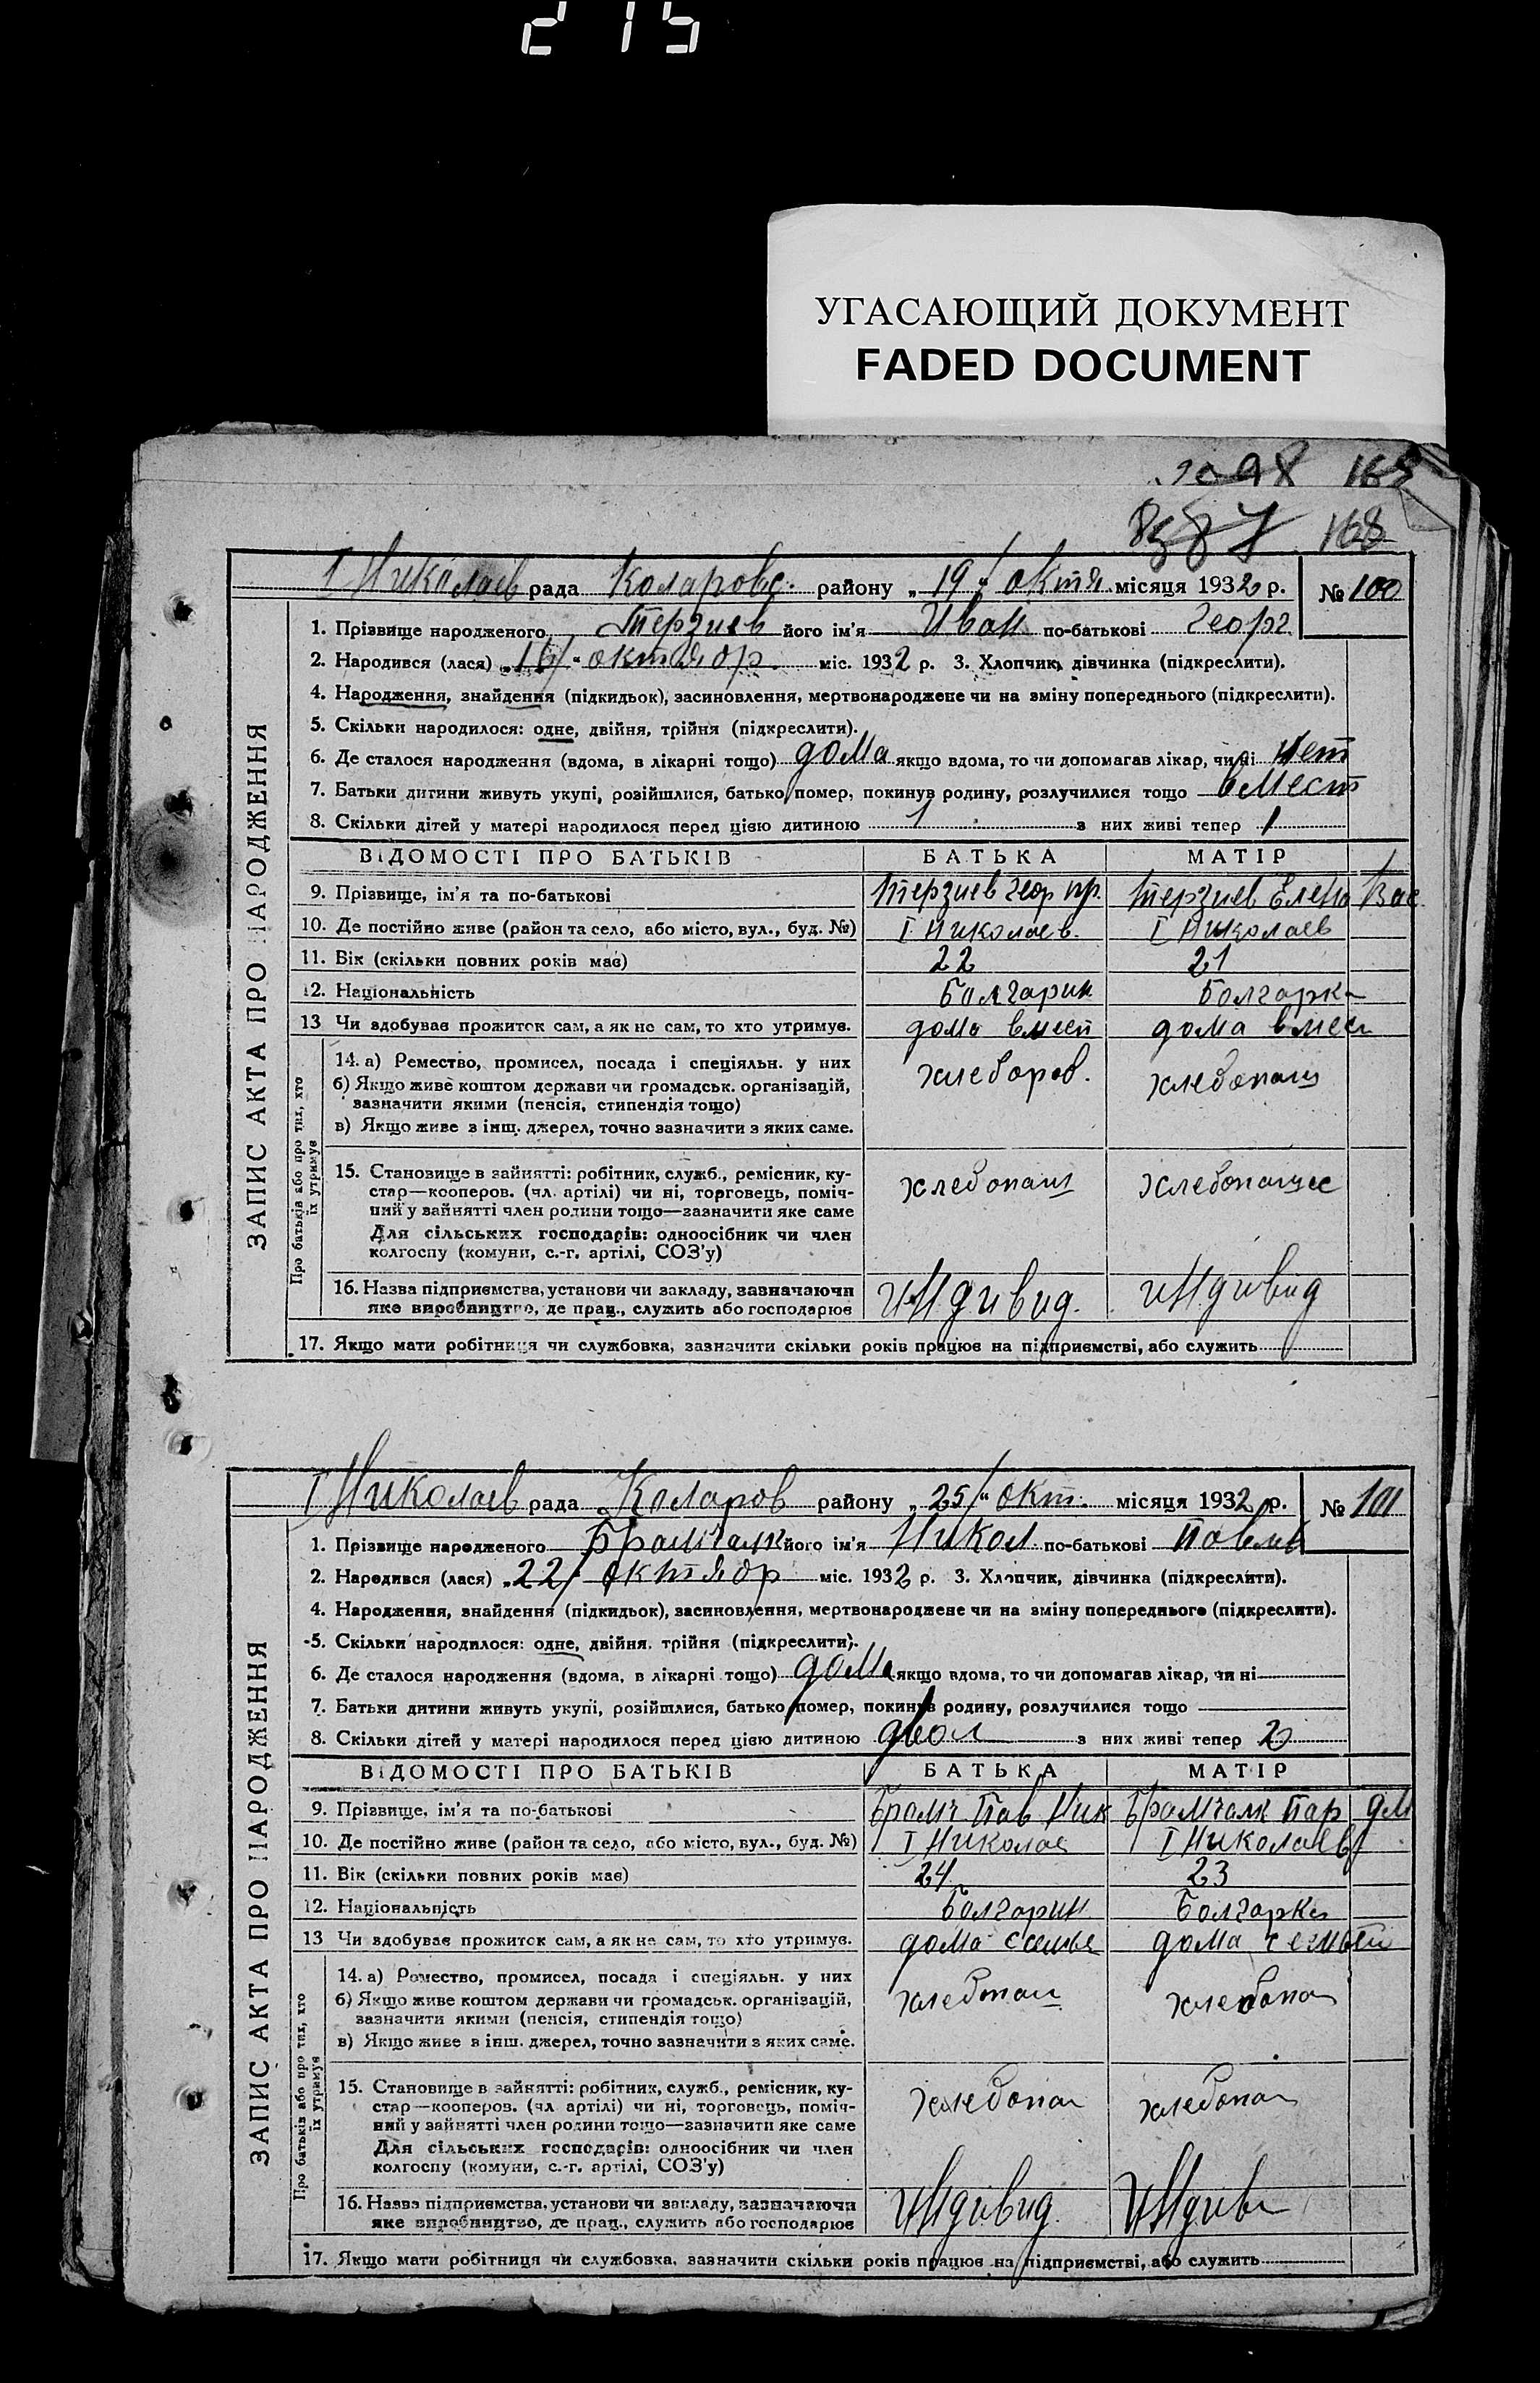 215
УГАСАЮЩИЙ ДОКУМЕНТ
FADED DOCUMENT
168
І Николаев рада Коларовс. району „19/" октя. місяця 1932 р. № 100
ЗАПИС АКТА ПРО НАРОДЖЕННЯ
1. Прізвище народженого Терзиев його ім'я Иван по-батькові Георг.
2. Народився (лася) „16/" октябр. міс. 1932 р. 3. Хлопчик, дівчинка (підкреслити).
4. Народження, знайдення (підкидьок), засиновлення, мертвонароджене чи на зміну попереднього (підкреслити).
5. Скільки народилося: одне, двійня, трійня (підкреслити).
6. Де сталося народження (вдома, в лікарні тощо) дома якщо вдома, то чи допомагав лікар, чи ні нет
7. Батьки дитини живуть укупі, розійшлися, батько помер, покинув родину, розлучилися тощо вмест
8. Скільки дітей у матері народилося перед цією дитиною 1 з них живі тепер 1
ВІДОМОСТІ ПРО БАТЬКІВ БАТЬКА МАТІР
9. Прізвище, ім'я та по-батькові Терзиев Геор пр. Терзиев Елена Вас.
10. Де постійно живе (район та село, або місто, вул., буд. №) І Николаев. І Николаев
11. Вік (скільки повних років має) 22 21
12. Національність Болгарин Болгарка
13 Чи здобував прожиток сам, а як не сам, то хто утримує. дома вмест дома вмес
Про батьків або про тих, хто їх утримує
14. а) Ремество, промисел, посада і спеціяльн. у них
б) Якщо живе коштом держави чи громадськ. організацій,
зазначити якими (пенсія, стипендія тощо)
в) Якщо живе з інш. джерел, точно зазначити з яких саме.
хлебороб. хлебопаш
15. Становище в зайнятті: робітник, служб., ремісник, ку-
стар—кооперов. (чл. артілі) чи ні, торговець, поміч-
ний у зайнятті член родини тощо—зазначити яке саме
Для сільських господарів: одноосібник чи член
колгоспу (комуни, с.-г. артілі, СОЗ'у)
хлебопаш хлебопашес
16. Назва підприємства, установи чи закладу, зазначаючи
яке виробництво, де прац., служить або господарює
индивид. индивид
17. Якщо мати робітниця чи службовка, зазначити скільки років працює на підприємстві, або служить
І Николаев рада Коларов району „25/" окт. місяця 1932 р. № 101
ЗАПИС АКТА ПРО НАРОДЖЕННЯ
1. Прізвище народженого його ім'я Никол по-батькові Павлов
2. Народився (лася) „22/ октябр міс. 1932 р. 3. Хлопчик, дівчинка (підкреслити).
4. Народження, знайдення (підкидьок), засиновлення, мертвонароджене чи на зміну попереднього (підкреслити).
5. Скільки народилося: одне, двійня, трійня (підкреслити).
6. Де сталося народження (вдома, в лікарні тощо) дома якщо вдома, то чи допомагав лікар, чи ні
7. Батьки дитини живуть укупі, розійшлися, батько помер, покинув родину, розлучилися тощо
8. Скільки дітей у матері народилося перед цією дитиною з них живі тепер 2
ВІДОМОСТІ ПРО БАТЬКІВ БАТЬКА МАТІР
9. Прізвище, ім'я та по-батькові Пав Ник Пар
10. Де постійно живе (район та село, або місто, вул., буд. №) І Николае І Николаев
11. Вік (скільки повних років має) 24 23
12. Національність Болгарин Болгарка
13 Чи здобував прожиток сам, а як не сам, то хто утримує. дома семье дома семьей
Про батьків або про тих, хто їх утримує
14. а) Ремество, промисел, посада і спеціяльн. у них
б) Якщо живе коштом держави чи громадськ. організацій,
зазначити якими (пенсія, стипендія тощо)
в) Якщо живе з інш. джерел, точно зазначити з яких саме.
хлебопаш хлебопа
15. Становище в зайнятті: робітник, служб., ремісник, ку-
стар—кооперов. (чл. артілі) чи ні, торговець, поміч-
ний у зайнятті член родини тощо—зазначити яке саме
Для сільських господарів: одноосібник чи член
колгоспу (комуни, с.-г. артілі, СОЗ'у)
хлебопа хлебопа
16. Назва підприємства, установи чи закладу, зазначаючи
яке виробництво, де прац., служить або господарює
индивид. индиви
17. Якщо мати робітниця чи службовка, зазначити скільки років працює на підприємстві, або служить